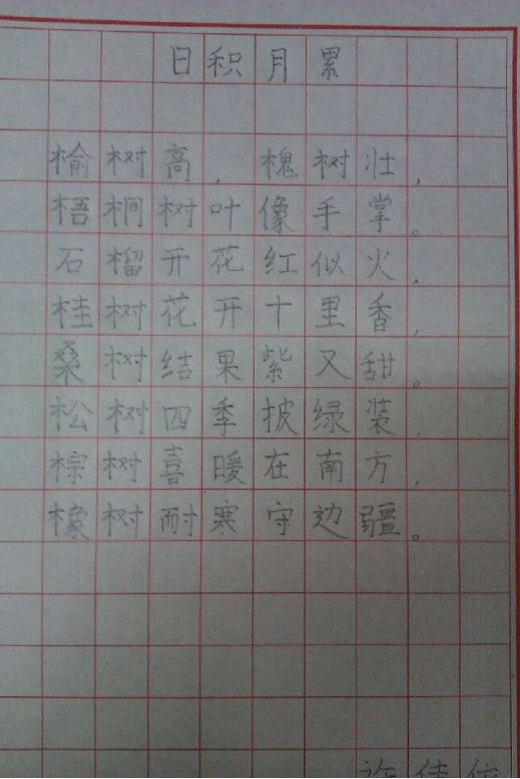 日积月累
榆树高，槐树壮，
梧桐树叶像手掌。
石榴开花红似火，
桂树花开十里香，
桑树结果紫又甜。
松树四季披绿装，
棕树喜暖在南方，
橡树耐寒守边疆。